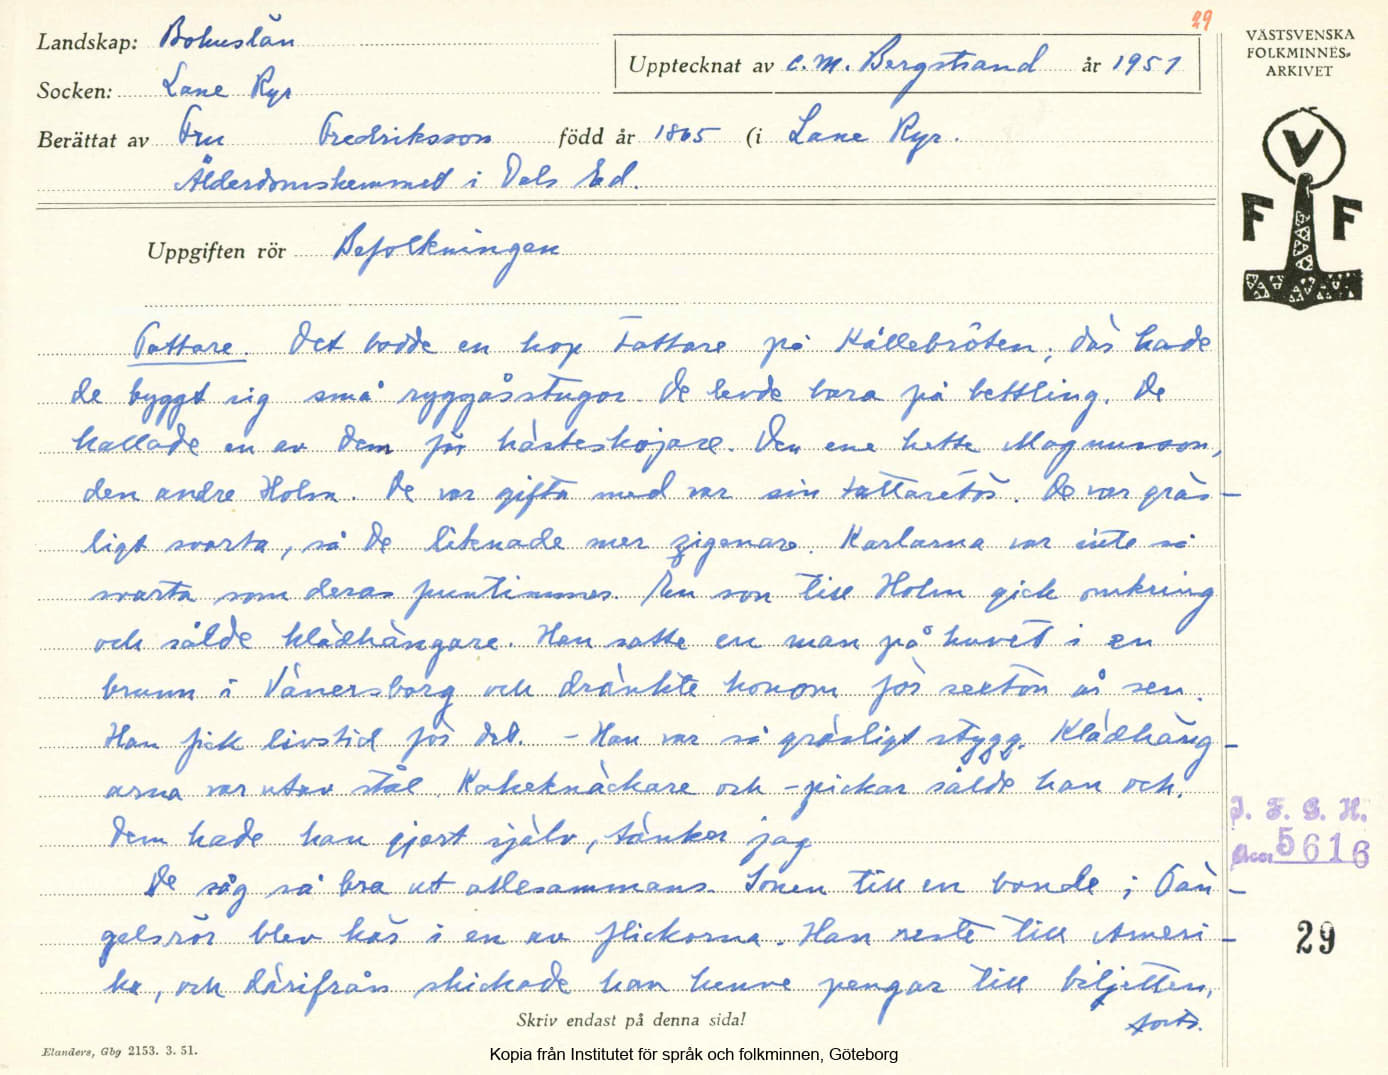 29
Landskap: Bohuslän
Upptecknat av C. M. Bergstrand år 1951
VÄSTSVENSKA
FOLKMINNES-
ARKIVET
Socken: Lane Ryr
Berättat av Fru Fredriksson född år 1865 (i Lane Ryr.
Ålderdomshemmet i Dals Ed.
V
F F
Uppgiften rör Befolkningen
Tattare. Det bodde en hop tattare på Källebröten, där hade
de byggt sig små ryggåsstugor. De levde bara på bettling. De
kallade en av dem för hästeskojare. Den ene hette Magnusson,
den andre Holm. De var gifta med var sin tattaretös. De var gräs-
ligt svarta, så de liknade mer zigenare. Karlarna var inte så
svarta som deras fruntimmer. En son till Holm gick omkring
och sålde klädhängare. Han satte en man på huvet i en
brunn i Vänersborg och dränkte honom för sexton år sen.
Han fick livstid för det. - Han var så gräsligt stygg. Klädhäng-
arna var utav stål. Kakeknäckare och -pickar sålde han och.
Dem hade han gjort själv, tänker jag
De såg så bra ut allesammans. Sonen till en bonde i Tån-
gelsrör blev kär i en av flickorna. Han reste till Ameri-
ka, och därifrån skickade han henne pengar till biljetten,
forts.
I. F. G. H.
Acc. 5616
29
Skriv endast på denna sida!
Elanders, Gbg 2153. 3. 51.
Kopia från Institutet för språk och folkminnen, Göteborg